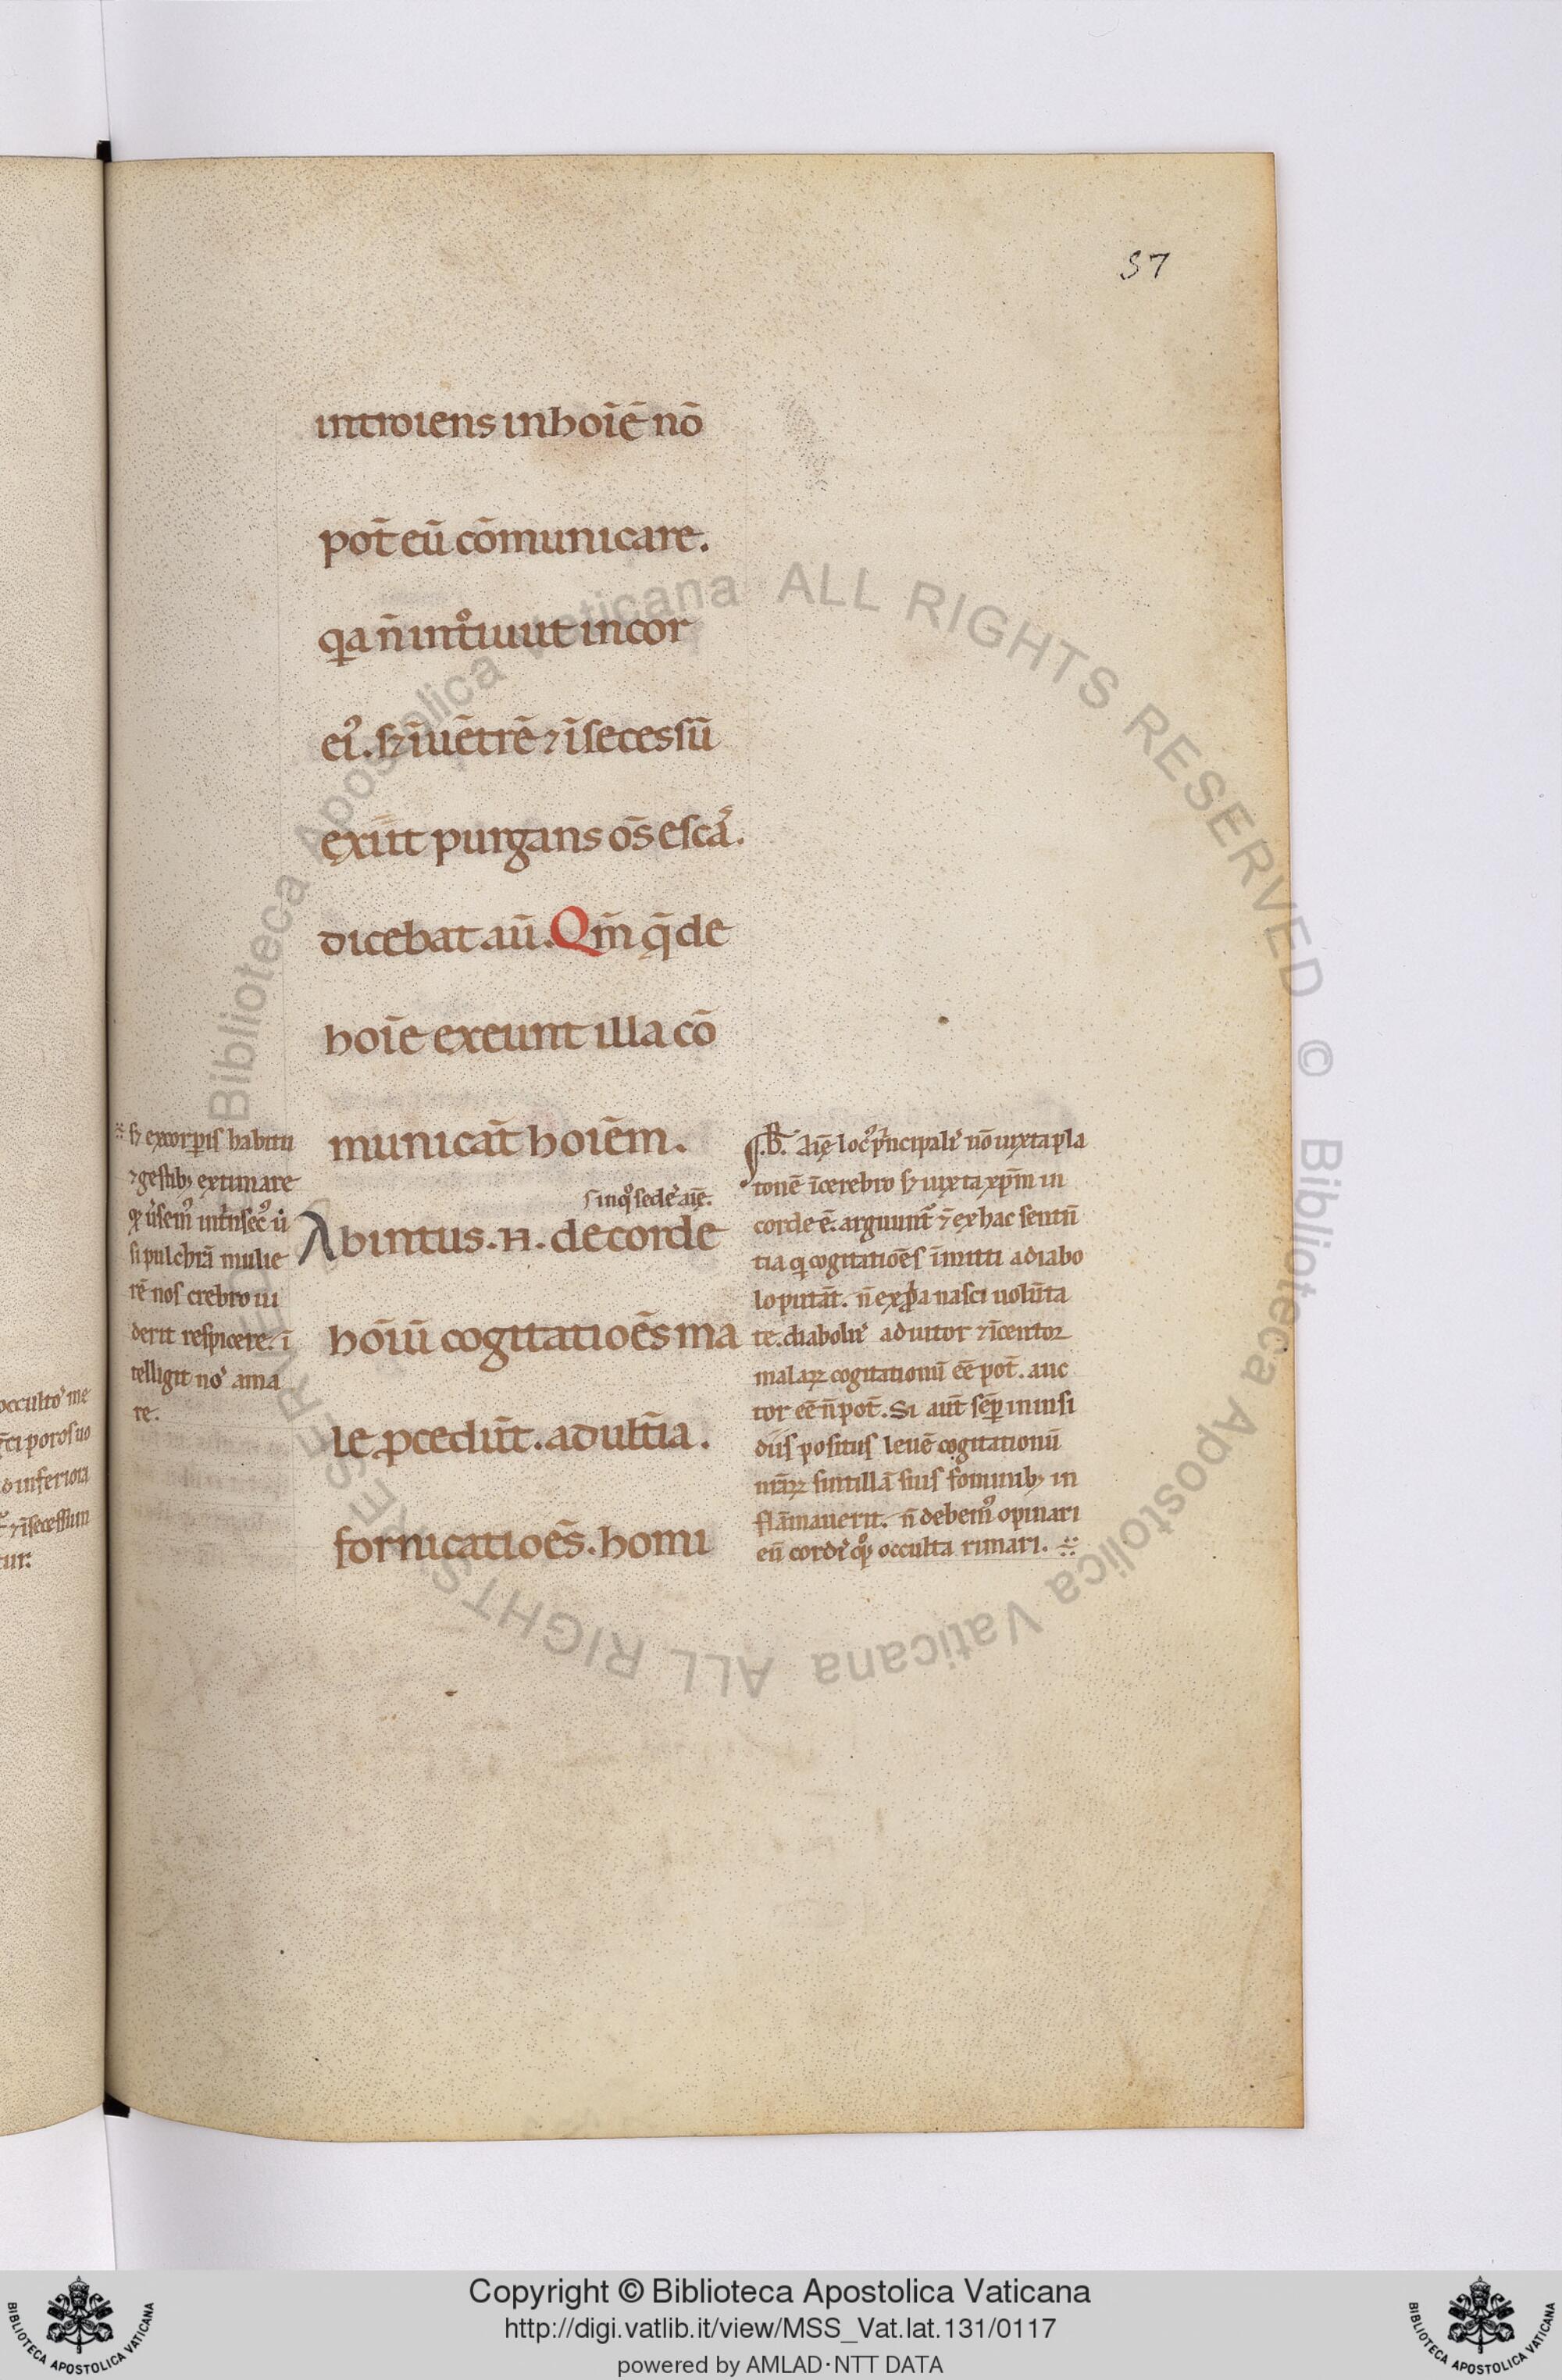 57
introiens in hoīē nō
pot̄ eū cōmunicare.
qa n̄ intͦiuit in cor
ei᾽. sꝫ ī uētrē ⁊ ī secessū
exiit purgans om̄s escas.
dicebat aū. Qm̄ q̄ de
hoīe exeunt illa cō
municāt hoiēm.
s. in quo sedes aīę.
Ab intus .n. de corde
hoīū cogitatioēs ma
le ꝓcedūt. adultīa.
fornicatioēs. homi
sꝫ ex corꝑis habitu
⁊ gestibꝫ extimare
si pulchrā mulie
rē nos crebro ui
derit respicere. ī
telligit nos ama
re.
.b. aīę locus principalis nō iuxta pla
tonē ī cerebro sꝫ iuxta xp̄m in
corde ē. arguunt᾽ ⁊ ex hac sentn̄
tia qui cogitatiōes īmitti a diabo
lo putāt. n̄ ex ꝓpria nasci uolūta
te. diabolus adiutor ⁊ īcentor
malaꝝ cogitationū eē pot̄. auc
tor eē n̄ pot̄. Si aut̄ semꝑ in insi
diis positus leuē cogitationū
nr̄aꝝ sintillā suis fomitibꝫ in
flāmauerit. n̄ debem᾽ opinari
eū cordis quoqꝫ occulta rimari.
occulto me
poros suo
d inferiora
⁊ ī secessum
tur.
Biblioteca Apostolica Vaticana ALL RIGHTS RESERVED © Biblioteca Apostolica Vaticana ALL RIGHTS RESERVED ©
Copyright © Biblioteca Apostolica Vaticana
http://digi.vatlib.it/view/MSS_Vat.lat.131/0117
powered by AMLAD·NTT DATA
BIBLIOTECA APOSTOLICA VATICANA
BIBLIOTECA APOSTOLICA VATICANA